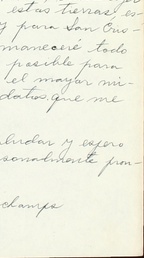 estas tierras, es-
y para San Oro-
maneceré todo
posible para
el mayor nú-
datos, que me
ludar y espero
sonalmente pron-
champs